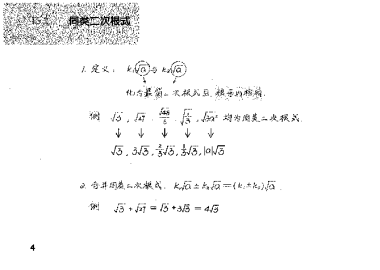 同类二次根式
1. 定义： k₁√a 与 k₂√a
化为最简二次根式后，被开方数相同
例 √3 , √27 , √3a² 均为同类二次根式
↓ ↓ ↓ ↓ ↓
√3 , 3√3 , |a|√3
2. 合并同类二次根式： k₁√a ± k₂√a = (k₁±k₂)√a
例 √3 + √27 = √3 + 3√3 = 4√3
4